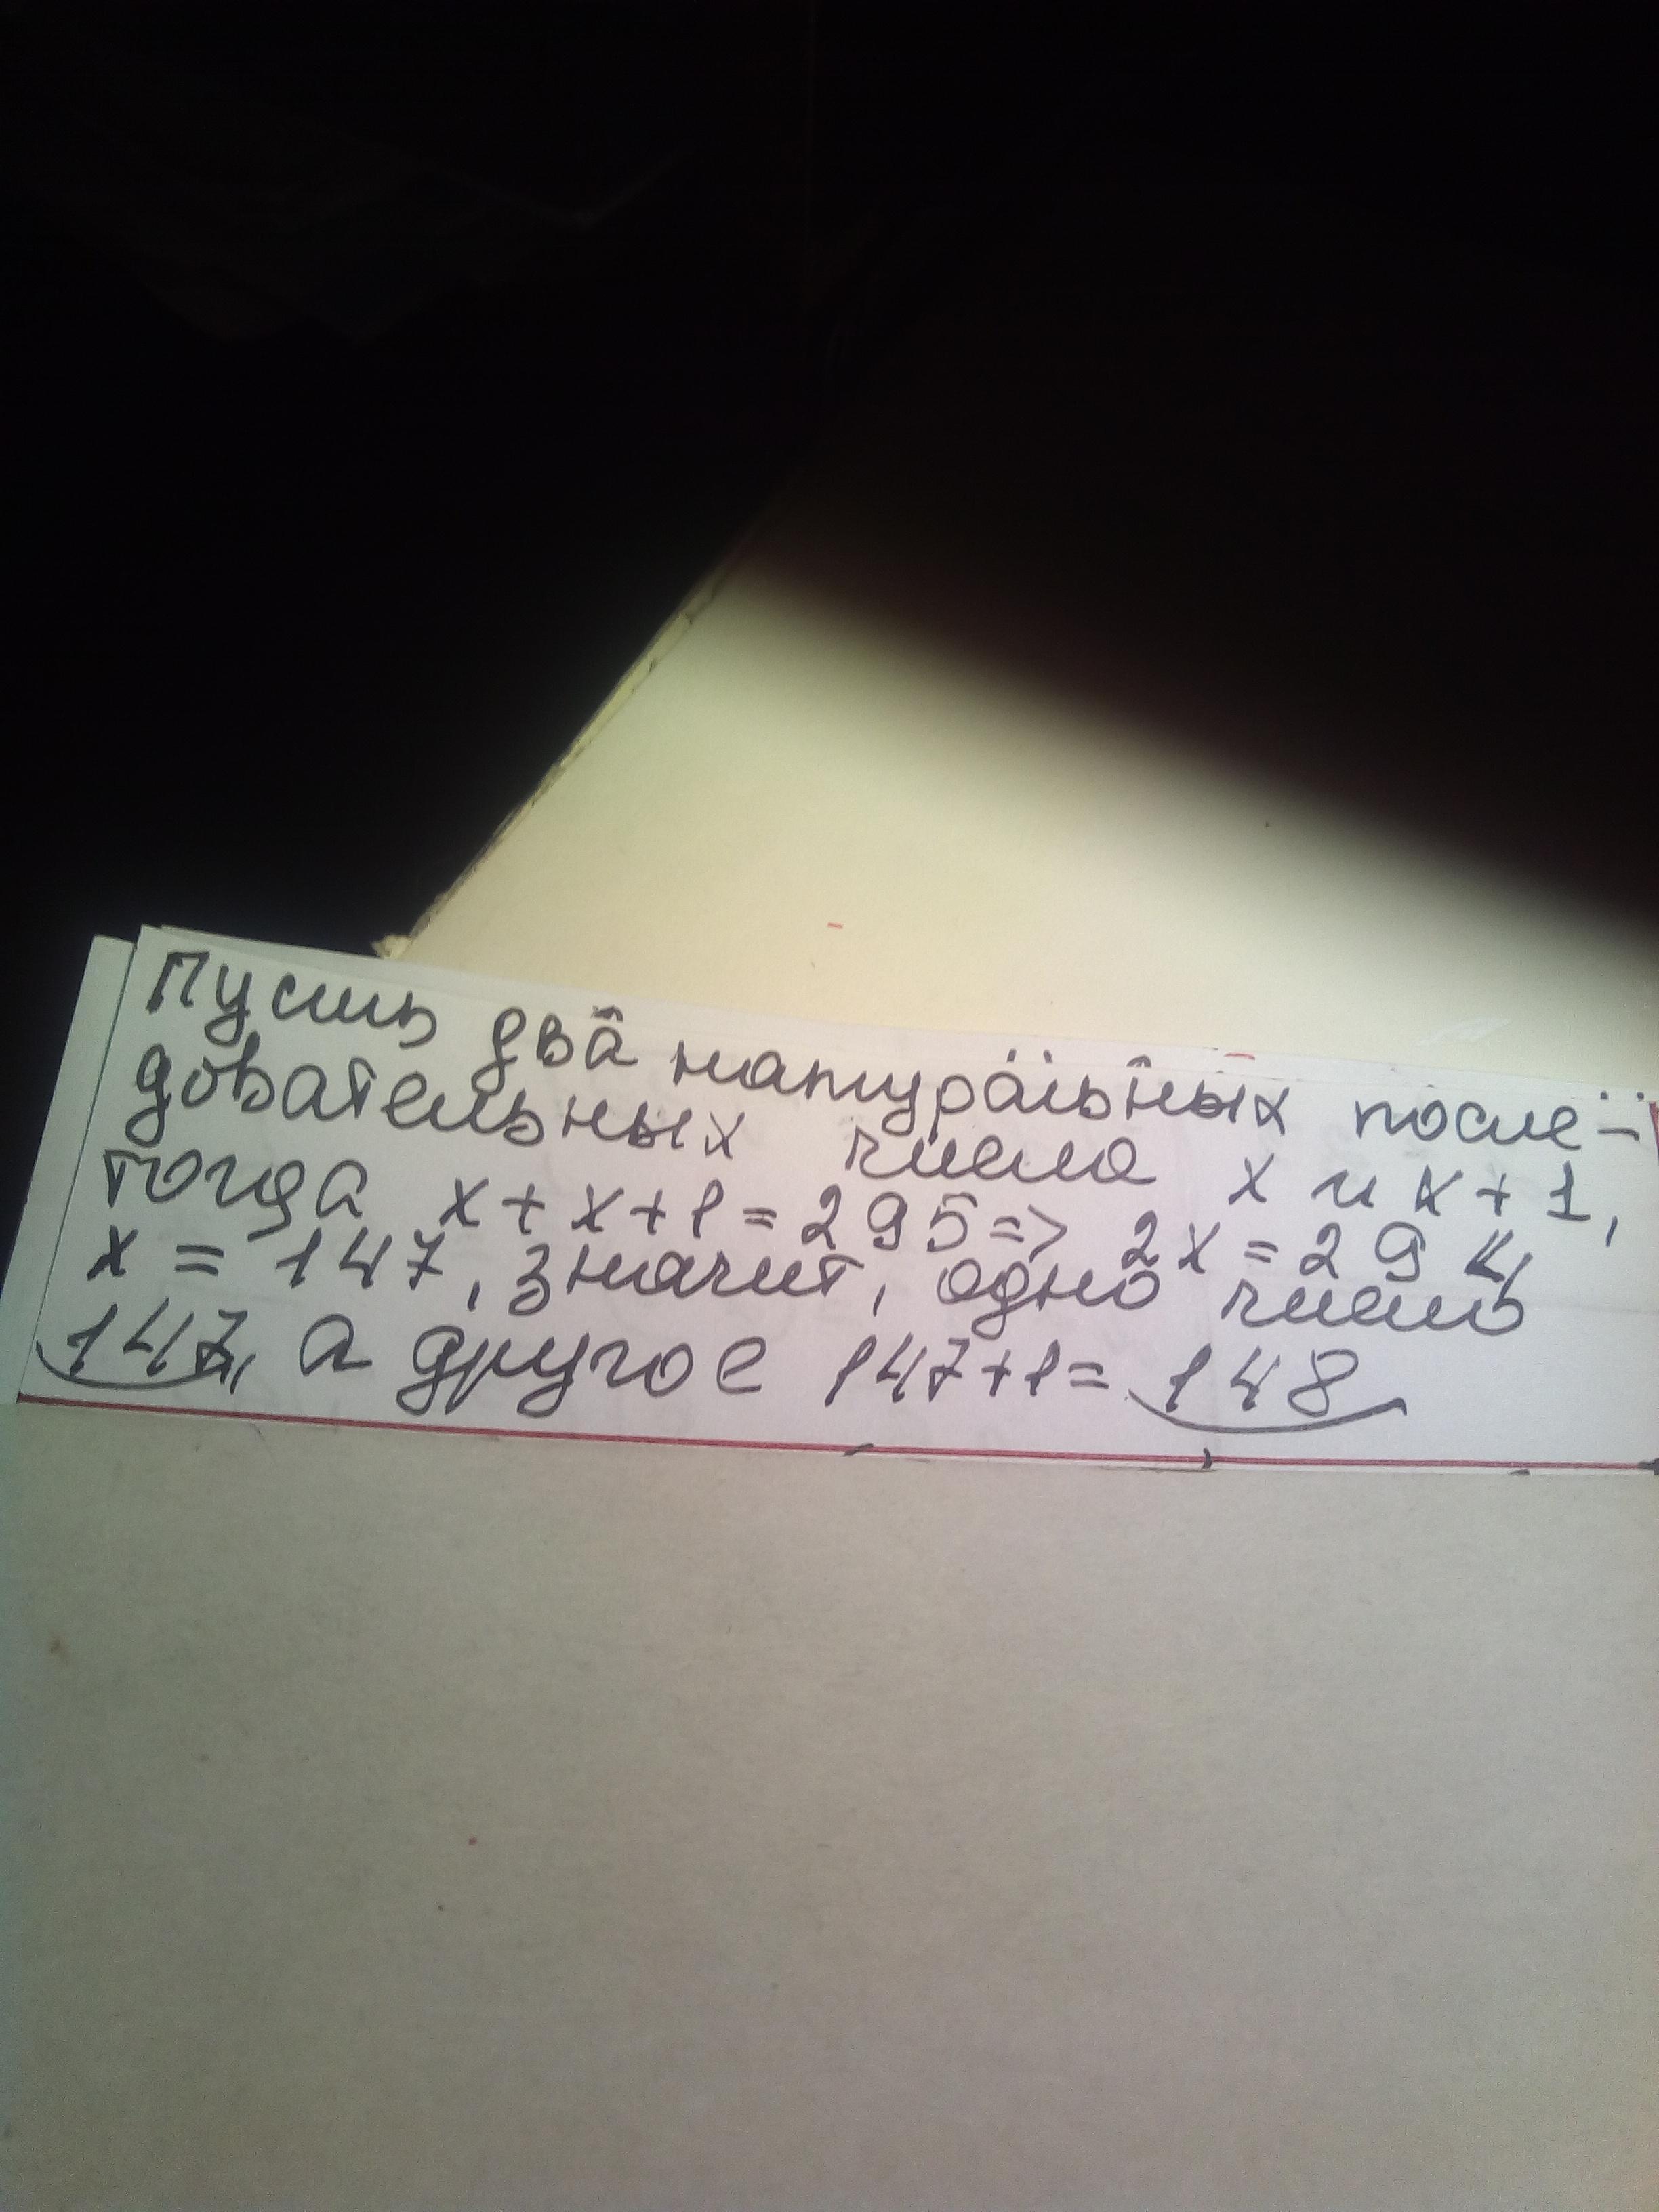 Пусть два натуральных после-
довательных числа x и x+1,
тогда x+x+1=295=> 2x=294,
x = 147, значит, одно число
147, а другое 147+1= 148